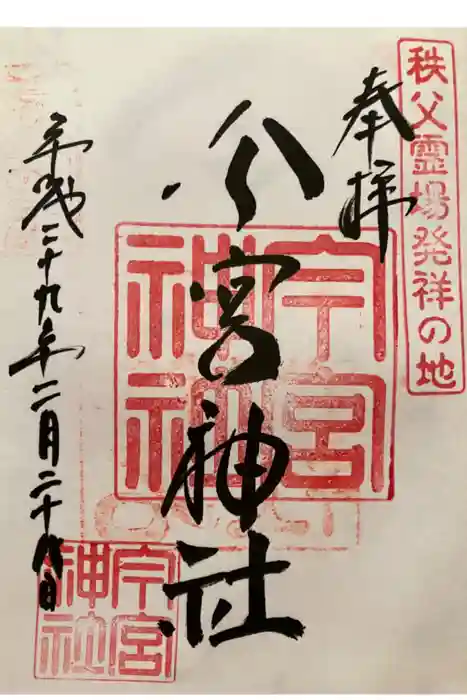 秩父霊場発祥の地
奉拝
今宮神社
今宮
神社
平成二十九年二月二十八日
今宮
神社